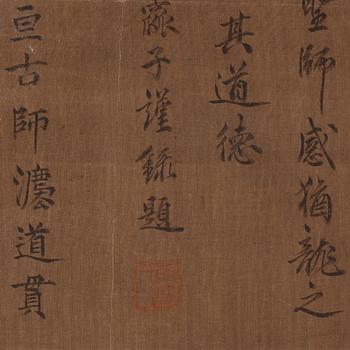 聖師感猶龍之
其道德
子謹錄題
亘古師濃道貫